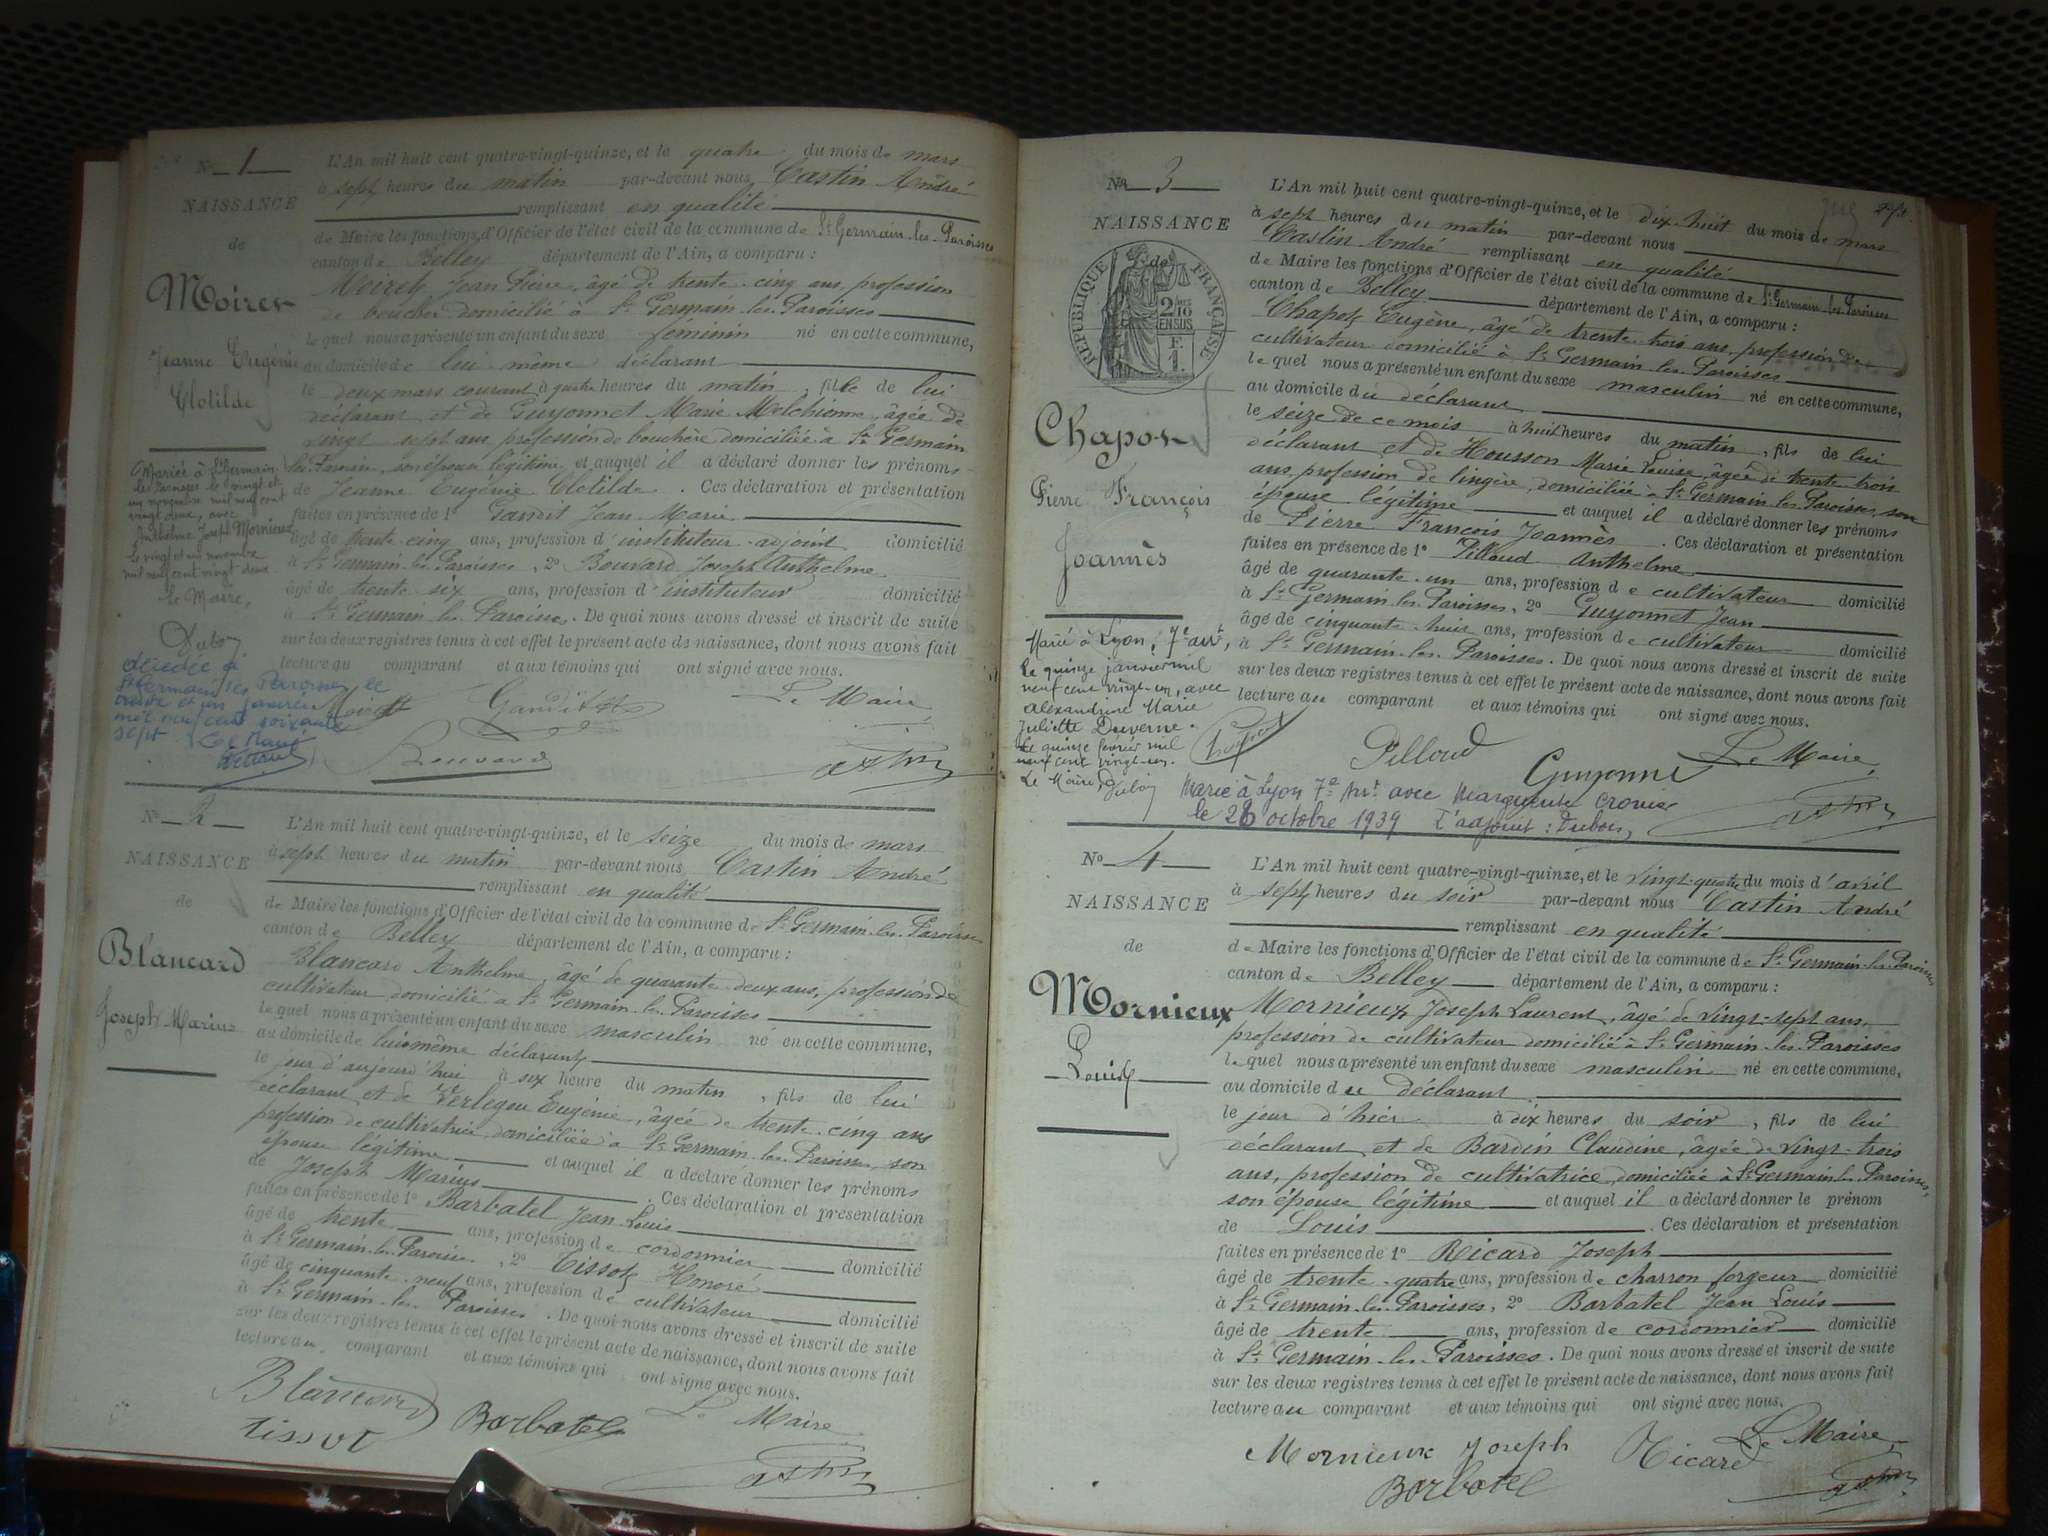 N° 1
NAISSANCE
de
Moiret
Jeanne Eugénie
Clotilde
Mariée à St Germain
les Paroisses le vingt et
un novembre mil neuf cent
vingt deux, avec
Anthelme Joseph Mornieux
Le vingt et un novembre
mil neuf cent vingt deux.
Le Maire,
Dubois
décédée à
St Germain les Paroisses le
trente et un janvier
mil neuf cent soixante
sept. Le Maire
L'An mil huit cent quatre-vingt-quinze, et le quatre du mois de mars
à sept heures du matin par-devant nous Castin André
remplissant en qualité
de Maire les fonctions d'Officier de l'état civil de la commune de St Germain-les-Paroisses
canton de Belley département de l'Ain, a comparu :
Moiret Jean Pierre, âgé de trente-cinq ans, profession
de boucher domicilié à St Germain-les-Paroisses
lequel nous a présenté un enfant du sexe féminin né en cette commune,
au domicile de lui-même déclarant
le deux mars courant à quatre heures du matin, fille de lui
déclarant et de Guyonnet Marie Melchionne, âgée de
vingt sept ans, profession de bouchère domiciliée à St Germain
les Paroisses, son épouse légitime et auquel il a déclaré donner les prénoms
de Jeanne Eugénie Clotilde. Ces déclaration et présentation
faites en présence de 1° Gandit Jean Marie
âgé de trente-cinq ans, profession d'instituteur-adjoint domicilié
à St Germain-les-Paroisses, 2° Bouvard Joseph Anthelme
âgé de trente-six ans, profession d'instituteur domicilié
à St Germain-les-Paroisses. De quoi nous avons dressé et inscrit de suite
sur les deux registres tenus à cet effet le présent acte de naissance, dont nous avons fait
lecture au comparant et aux témoins qui ont signé avec nous.
Moiret Gandit Le Maire,
Bouvard Castin
N° 2
NAISSANCE
de
Blancard
Joseph Marius
L'An mil huit cent quatre-vingt-quinze, et le seize du mois de mars
à sept heures du matin par-devant nous Castin André
remplissant en qualité
de Maire les fonctions d'Officier de l'état civil de la commune de St Germain-les-Paroisses
canton de Belley département de l'Ain, a comparu :
Blancard Anthelme, âgé de quarante-deux ans, profession de
cultivateur domicilié à St Germain-les-Paroisses
lequel nous a présenté un enfant du sexe masculin né en cette commune,
au domicile de lui-même déclarant
le jour d'aujourd'hui à six heure du matin, fils de lui
déclarant et de Eugénie, âgée de trente-cinq ans
profession de cultivatrice domiciliée à St Germain-les-Paroisses, son
épouse légitime et auquel il a déclaré donner les prénoms
de Joseph Marius. Ces déclaration et présentation
faites en présence de 1° Barbatel Jean Louis
âgé de trente ans, profession de cordonnier domicilié
à St Germain-les-Paroisses, 2° Tissot Honoré
âgé de cinquante-neuf ans, profession de cultivateur domicilié
à St Germain-les-Paroisses. De quoi nous avons dressé et inscrit de suite
sur les deux registres tenus à cet effet le présent acte de naissance, dont nous avons fait
lecture au comparant et aux témoins qui ont signé avec nous.
Blancard Barbatel Le Maire
tissot Castin
N° 3
NAISSANCE
de
RÉPUBLIQUE FRANÇAISE
2/10
EN SUS
F.
1.
Chapot
Pierre François
Joannès
Marié à Lyon, 7e arrt,
Le quinze janvier mil
neuf cent vingt-un, avec
Alexandrine Marie
Juliette Duverne.
Le quinze février mil
neuf cent vingt-un.
Le Maire, Dubois
L'An mil huit cent quatre-vingt-quinze, et le dix-huit du mois de mars
à sept heures du matin par-devant nous
Castin André remplissant en qualité
de Maire les fonctions d'Officier de l'état civil de la commune de St Germain-les-Paroisses
canton de Belley département de l'Ain, a comparu :
Chapot Eugène, âgé de trente-trois ans, profession de
cultivateur domicilié à St Germain-les-Paroisses
lequel nous a présenté un enfant du sexe masculin né en cette commune,
au domicile du déclarant
le seize de ce mois à huit heures du matin, fils de lui
déclarant et de Housson Marie Louise, âgée de trente-trois
ans, profession de lingère, domiciliée à St Germain-les-Paroisses, son
épouse légitime et auquel il a déclaré donner les prénoms
de Pierre François Joannès. Ces déclaration et présentation
faites en présence de 1° Pilloud Anthelme
âgé de quarante-un ans, profession de cultivateur domicilié
à St Germain-les-Paroisses, 2° Guyonnet Jean
âgé de cinquante-huit ans, profession de cultivateur domicilié
à St Germain-les-Paroisses. De quoi nous avons dressé et inscrit de suite
sur les deux registres tenus à cet effet le présent acte de naissance, dont nous avons fait
lecture au comparant et aux témoins qui ont signé avec nous.
Chapot Pilloud Guyonnet Le Maire,
Castin
Marié à Lyon 7e Arrt avec Marguerite Crozier
le 28 octobre 1939 L'adjoint : Dubois
N° 4
NAISSANCE
de
Mornieux
Louis
L'An mil huit cent quatre-vingt-quinze, et le vingt-quatre du mois d'avril
à sept heures du soir par-devant nous Castin André
remplissant en qualité
de Maire les fonctions d'Officier de l'état civil de la commune de St Germain-les-Paroisses
canton de Belley département de l'Ain, a comparu :
Mornieux Joseph Laurent, âgé de vingt-sept ans,
profession de cultivateur domicilié à St Germain-les-Paroisses
lequel nous a présenté un enfant du sexe masculin né en cette commune,
au domicile du déclarant
le jour d'hier à dix heures du soir, fils de lui
déclarant et de Bardin Claudine, âgée de vingt-trois
ans, profession de cultivatrice, domiciliée à St Germain-les-Paroisses,
son épouse légitime et auquel il a déclaré donner le prénom
de Louis. Ces déclaration et présentation
faites en présence de 1° Ricard Joseph
âgé de trente-quatre ans, profession de charron forgeur domicilié
à St Germain-les-Paroisses, 2° Barbatel Jean Louis
âgé de trente ans, profession de cordonnier domicilié
à St Germain-les-Paroisses. De quoi nous avons dressé et inscrit de suite
sur les deux registres tenus à cet effet le présent acte de naissance, dont nous avons fait
lecture au comparant et aux témoins qui ont signé avec nous.
Mornieux Joseph Ricard Le Maire,
Barbatel Castin